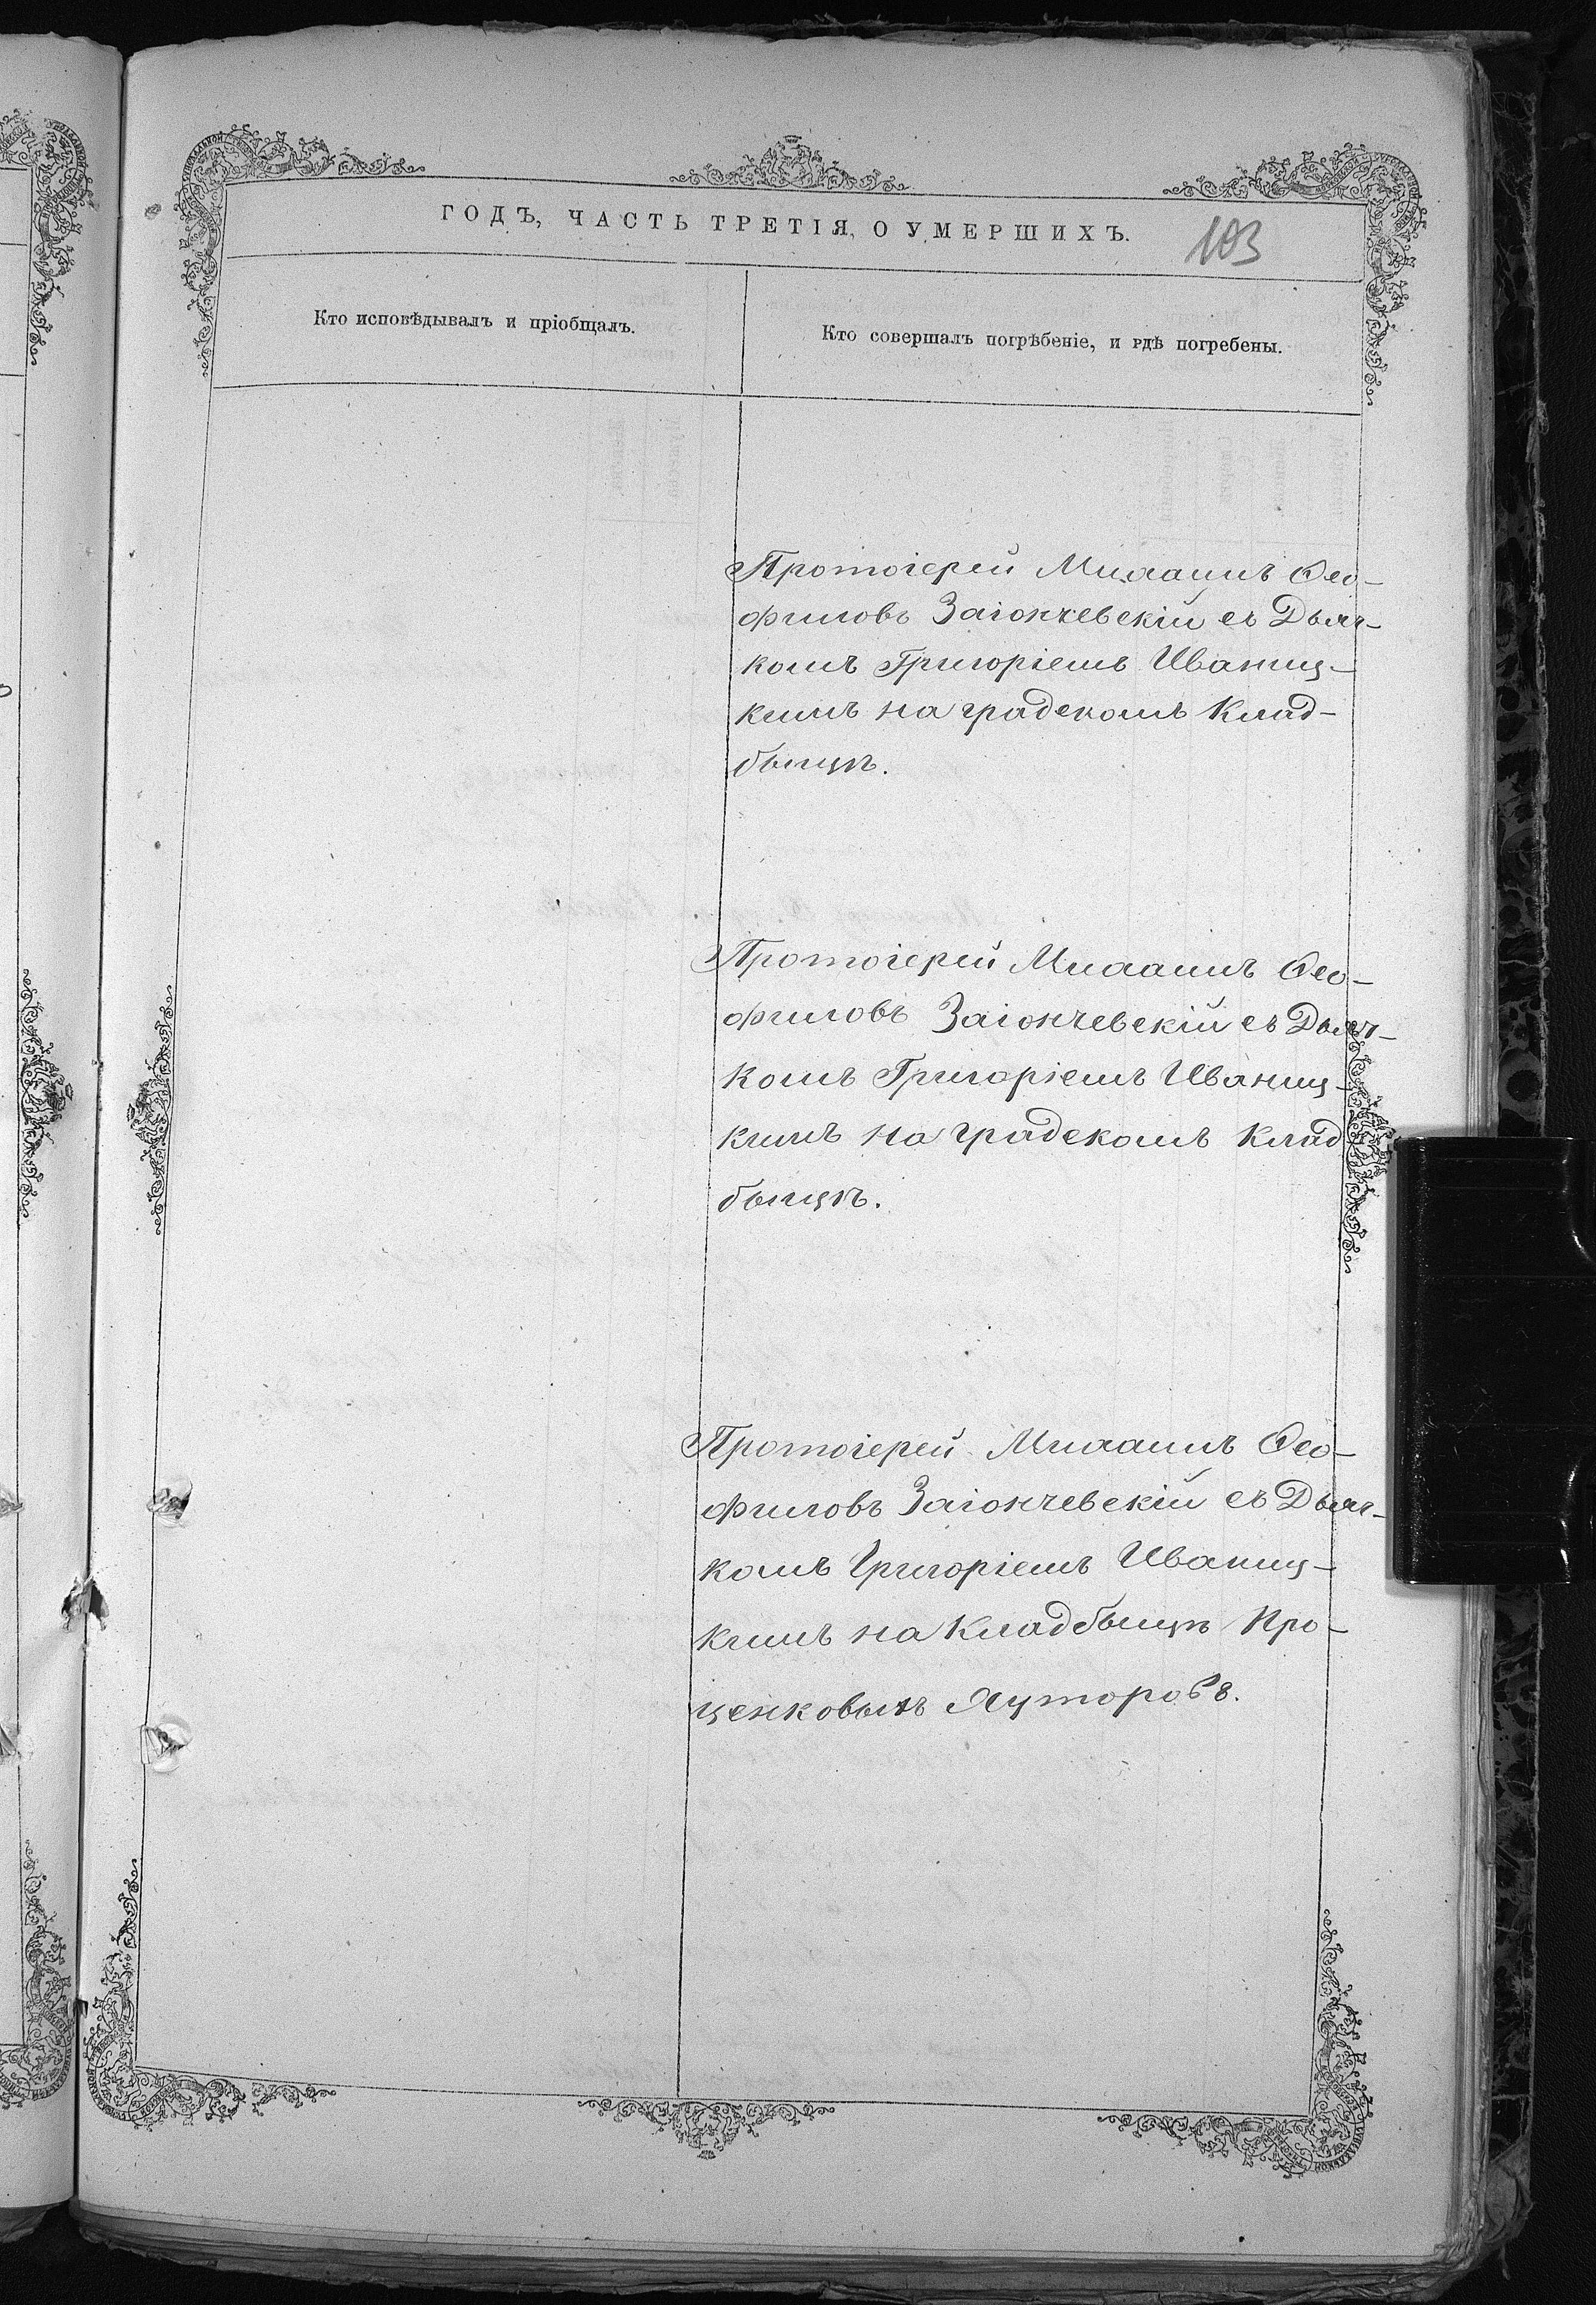 ГОДЪ, ЧАСТЬ ТРЕТІЯ, О УМЕРШИХЪ.
103
Кто исповѣдывалъ и пріобщалъ.
Кто совершалъ погрѣбеніе, и гдѣ погребены.
Протоіерей Михаилъ Ѳео-
филовъ Заіончевскій съ Дьяч-
комъ Григоріемъ Иваниц-
кимъ на градскомъ Клад-
бищѣ.
Протоіерей Михаилъ Ѳео-
филовъ Заіончевскій съ Дьяч-
комъ Григоріемъ Иваниц-
кимъ на градскомъ Клад
бищѣ.
Протоіерей Михаилъ Ѳео-
филовъ Заіончевскій съ Дьяч-
комъ Григоріемъ Иваниц-
кимъ на Кладбищѣ Про-
ценковыхъ Хуторовъ.